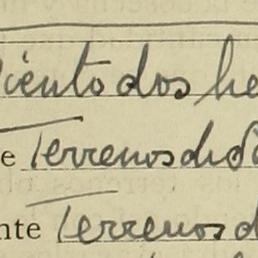 ciento dos he
e Terrenos de
nte Terrenos d